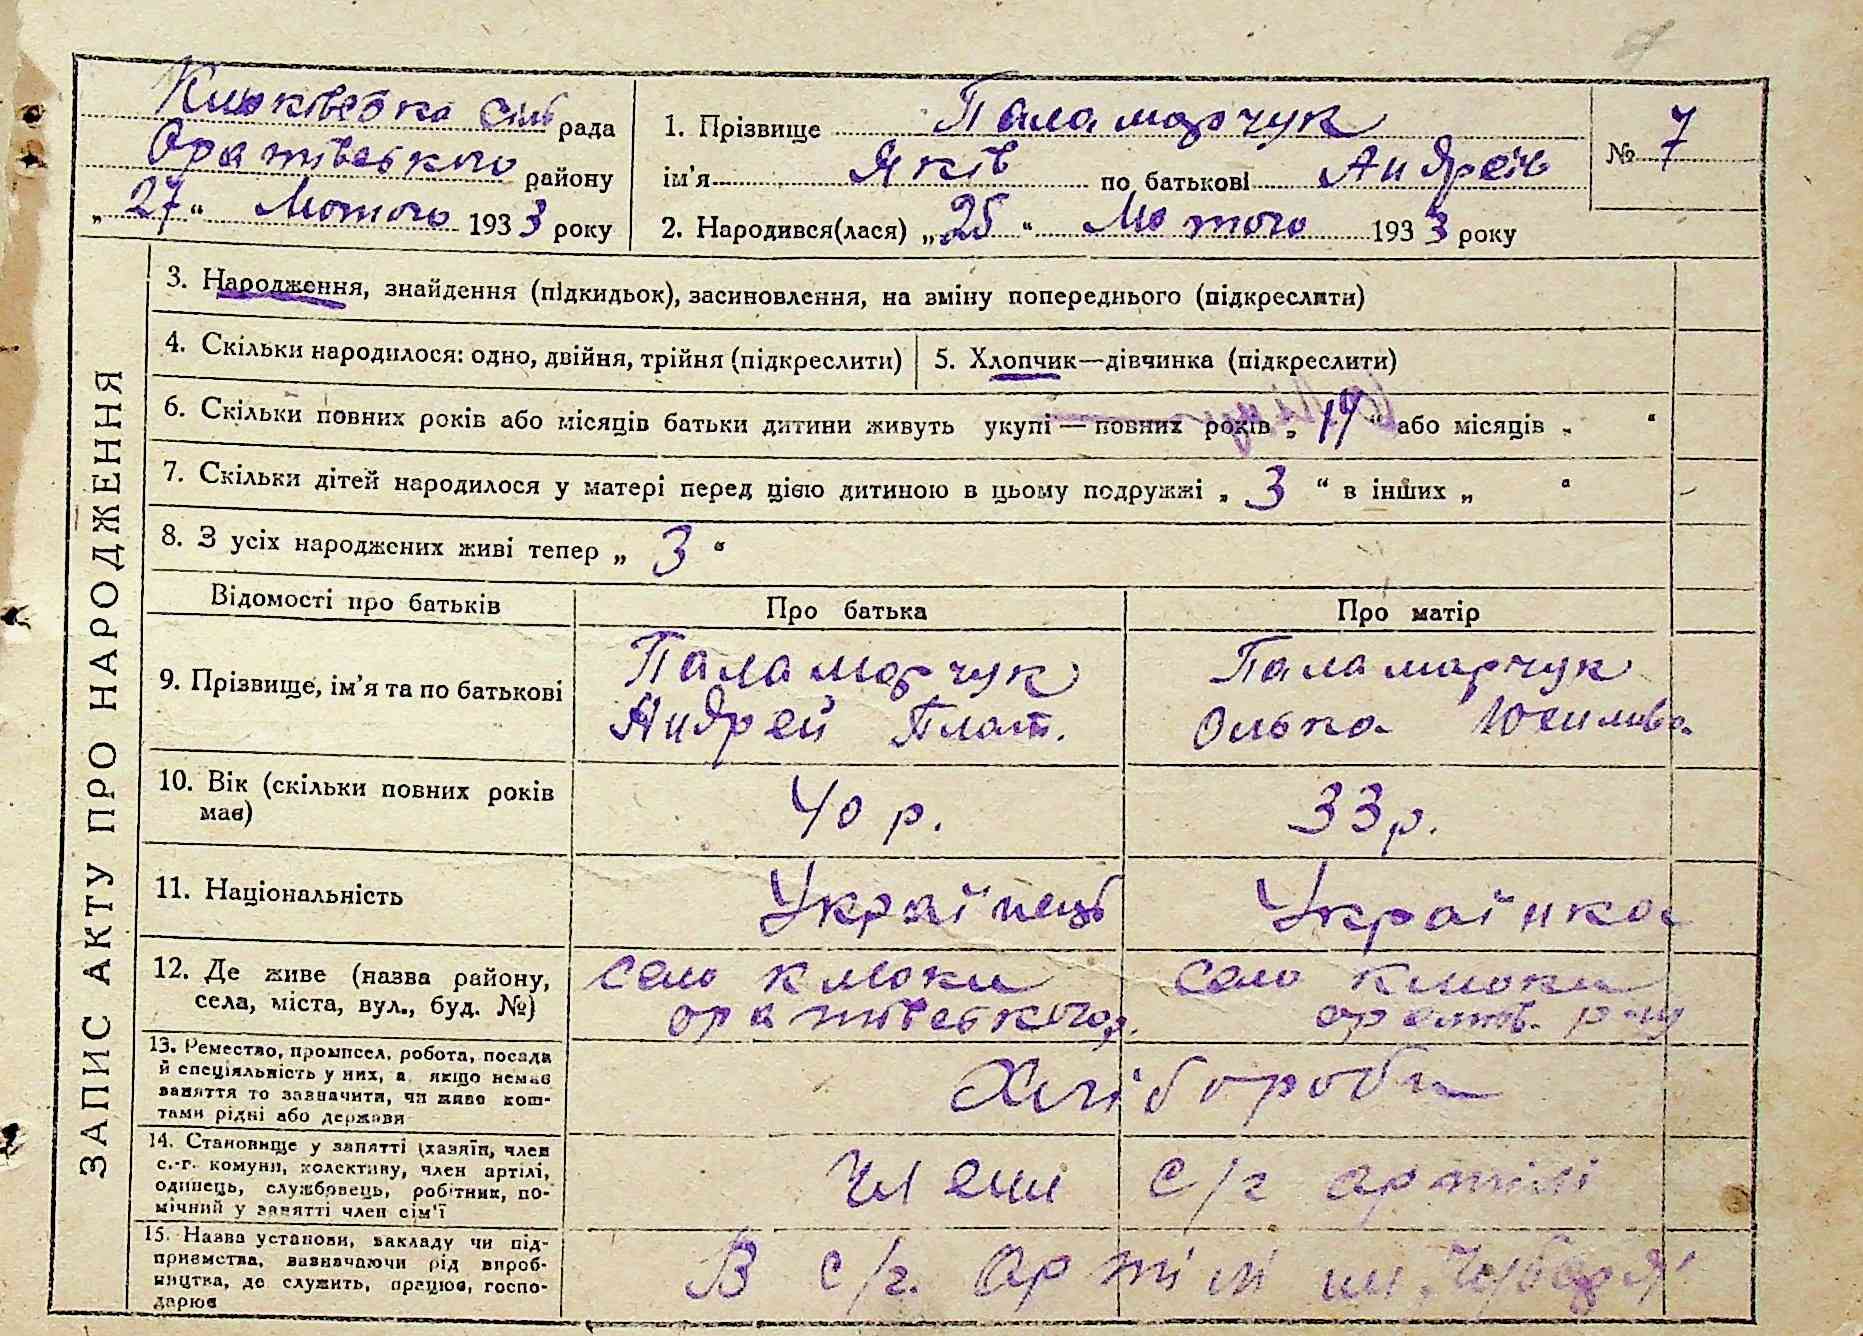 Клюківська сіль рада
Оратівського району
„27“ Лютого 1933 року
1. Прізвище Паламарчук
ім'я Яків по батькові Андреєв
№ 7
2. Народився(лася) „25“ Лютого 1933 року
ЗАПИС АКТУ ПРО НАРОДЖЕННЯ
3. Народження, знайдення (підкидьок), засиновлення, на зміну попереднього (підкреслити)
4. Скільки народилося: одно, двійня, трійня (підкреслити)
5. Хлопчик—дівчинка (підкреслити)
6. Скільки повних років або місяців батьки дитини живуть укупі — повних років „19“ або місяців „ “
7. Скільки дітей народилося у матері перед цією дитиною в цьому подружжі „3“ в інших „ “
8. З усіх народжених живі тепер „3“
Відомості про батьків
Про батька
Про матір
9. Прізвище, ім'я та по батькові
Паламарчук
Андрей Плат.
Паламарчук
Олька
10. Вік (скільки повних років
має)
40 р.
33 р.
11. Національність
Українець
Українка
12. Де живе (назва району,
села, міста, вул., буд. №)
село Клюки
оратівського р.
село Клюки
оратів. р-ну
13. Ремество, промисел, робота, посада
й спеціяльність у них, а якщо немає
заняття то зазначити, чи живе кош-
тами рідні або держави
Хлібороби
14. Становище у занятті (хазяїн, член
с.-г. комуни, колективу, член артілі,
одинець, службовець, робітник, по-
мічний у занятті член сім'ї
Члени с/г артілі
15. Назва установи, закладу чи під-
приємства, визначаючи рід вироб-
ництва, де служить, працює, госпо-
дарює
В с/г. Артілі ім. Чубаря